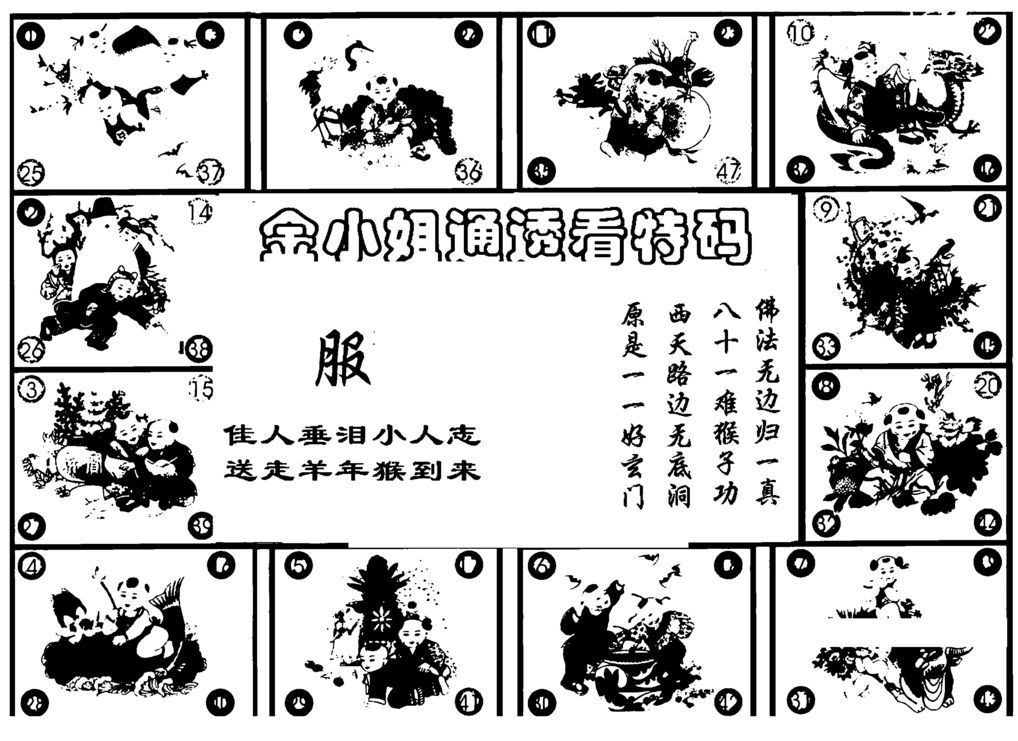 25
37
36
11
47
10
14
26
38
3
15
金小姐通透看特码
服
佳人垂泪小人志
送走羊年猴到来
佛法无边归一真
八十一难猴子功
西天路边无底洞
原是一一好玄门
9
21
33
45
8
20
32
44
27
39
4
28
5
29
41
6
42
31
43